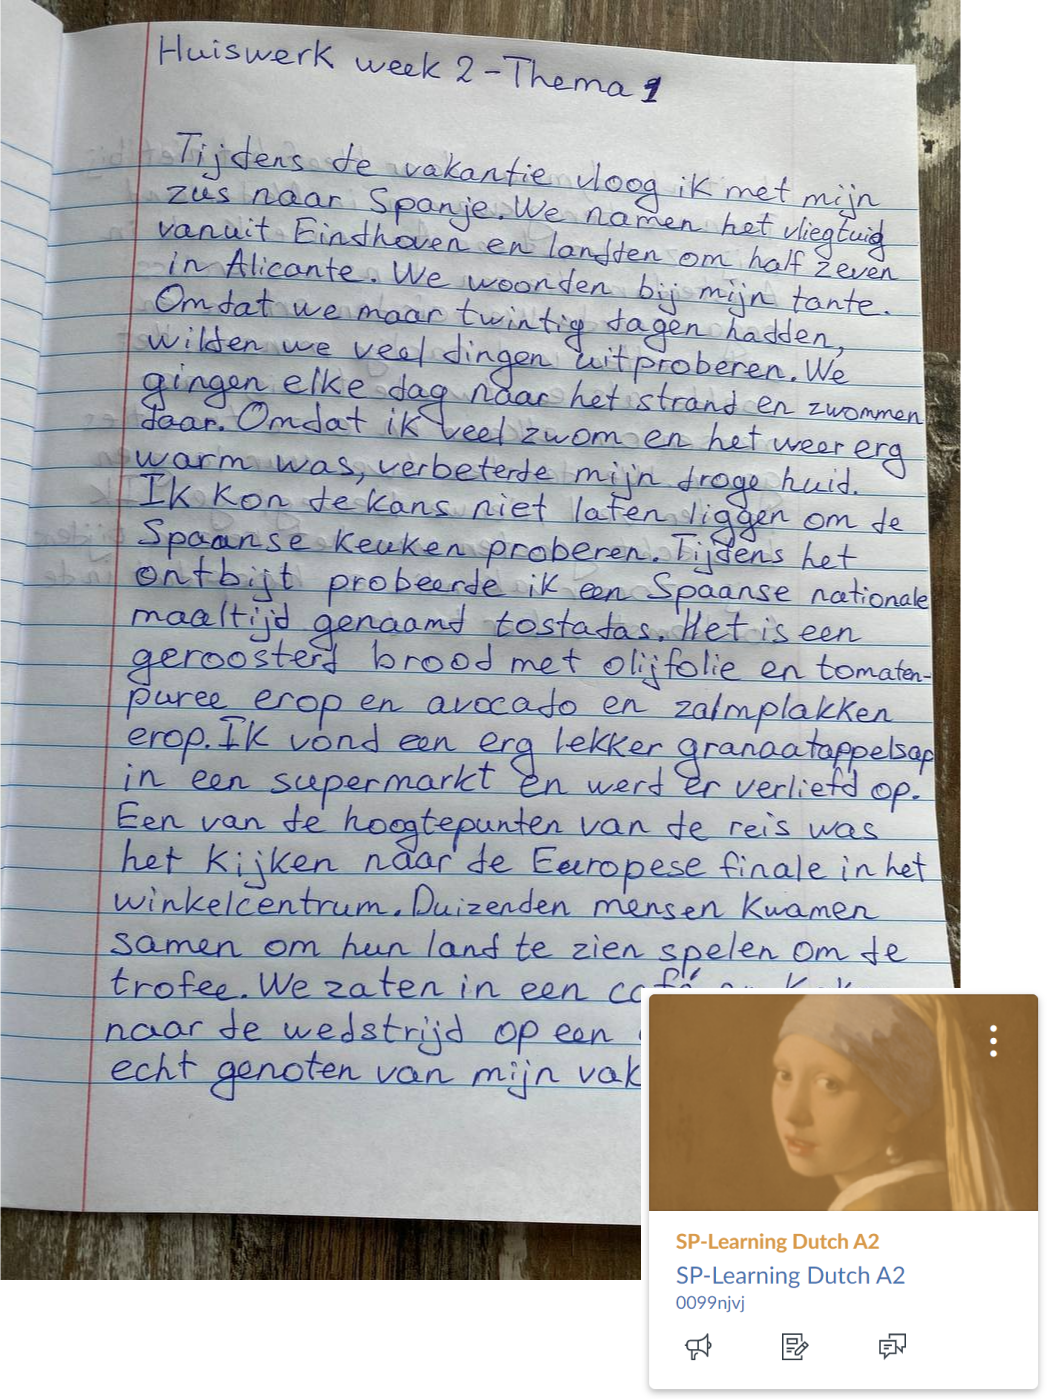 Huiswerk week 2 - Thema 1
Tijdens de vakantie vloog ik met mijn
zus naar Spanje. We namen het vliegtuig
vanuit Eindhoven en landden om half zeven
in Alicante. We woonden bij mijn tante.
Omdat we maar twintig dagen hadden,
wilden we veel dingen uitproberen. We
gingen elke dag naar het strand en zwommen
daar. Omdat ik veel zwom en het weer erg
warm was, verbeterde mijn droge huid.
Ik kon de kans niet laten liggen om de
Spaanse keuken proberen. Tijdens het
ontbijt probeerde ik een Spaanse nationale
maaltijd genaamd tostadas. Het is een
geroosterd brood met olijfolie en tomaten-
puree erop en avocado en zalmplakken
erop. Ik vond een erg lekker granaatappelsap
in een supermarkt en werd er verliefd op.
Een van de hoogtepunten van de reis was
het kijken naar de Europese finale in het
winkelcentrum. Duizenden mensen kwamen
samen om hun land te zien spelen om de
trofee. We zaten in een café
naar de wedstrijd op een
echt genoten van mijn vak
SP-Learning Dutch A2
SP-Learning Dutch A2
0099njvj